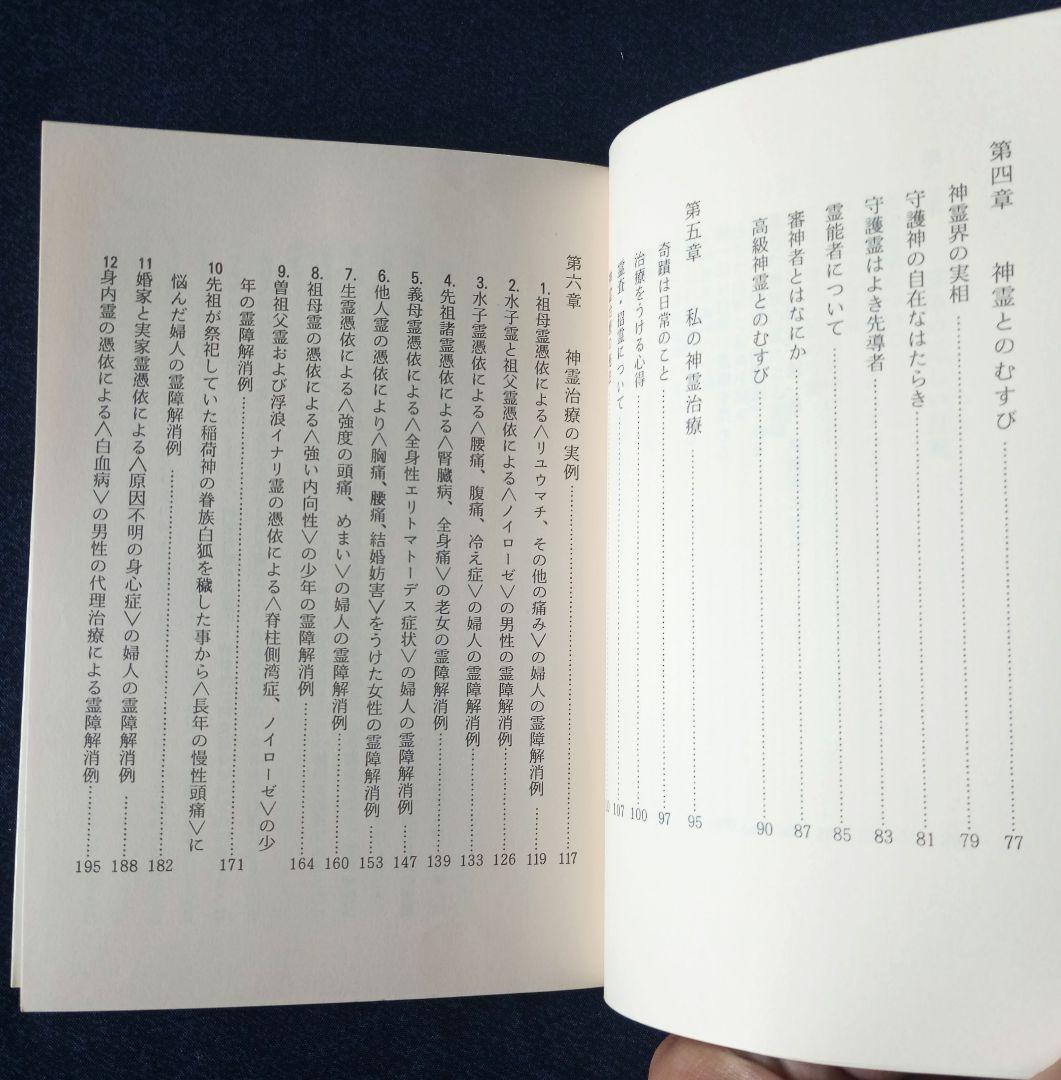 第四章　神霊とのむすび……77
神霊界の実相……79
守護神の自在なはたらき……81
守護霊はよき先導者……83
霊能者について……85
審神者とはなにか……87
高級神霊とのむすび……90
第五章　私の神霊治療……95
奇蹟は日常のこと……97
治療をうける心得……100
霊査・招霊について……107
第六章　神霊治療の実例……117
1.祖母霊憑依による＜リュウマチ、その他の痛み＞の婦人の霊障解消例……119
2.水子霊と祖父霊憑依による＜ノイローゼ＞の男性の霊障解消例……126
3.水子霊憑依による＜腰痛、腹痛、冷え症＞の婦人の霊障解消例……133
4.先祖諸霊憑依による＜腎臓病、全身痛＞の老女の霊障解消例……139
5.義母霊憑依による＜全身性エリトマトーデス症状＞の婦人の霊障解消例……147
6.他人霊の憑依により＜胸痛、腰痛、結婚妨害＞をうけた女性の霊障解消例……153
7.生霊憑依による＜強度の頭痛、めまい＞の婦人の霊障解消例……160
8.祖母霊の憑依による＜強い内向性＞の少年の霊障解消例……164
9.曽祖父霊および浮浪イナリ霊の憑依による＜脊柱側湾症、ノイローゼ＞の少
年の霊障解消例……171
10先祖が祭祀していた稲荷神の眷族白狐を穢した事から＜長年の慢性頭痛＞に
悩んだ婦人の霊障解消例……182
11婚家と実家霊憑依による＜原因不明の身心症＞の婦人の霊障解消例……188
12身内霊の憑依による＜白血病＞の男性の代理治療による霊障解消例……195